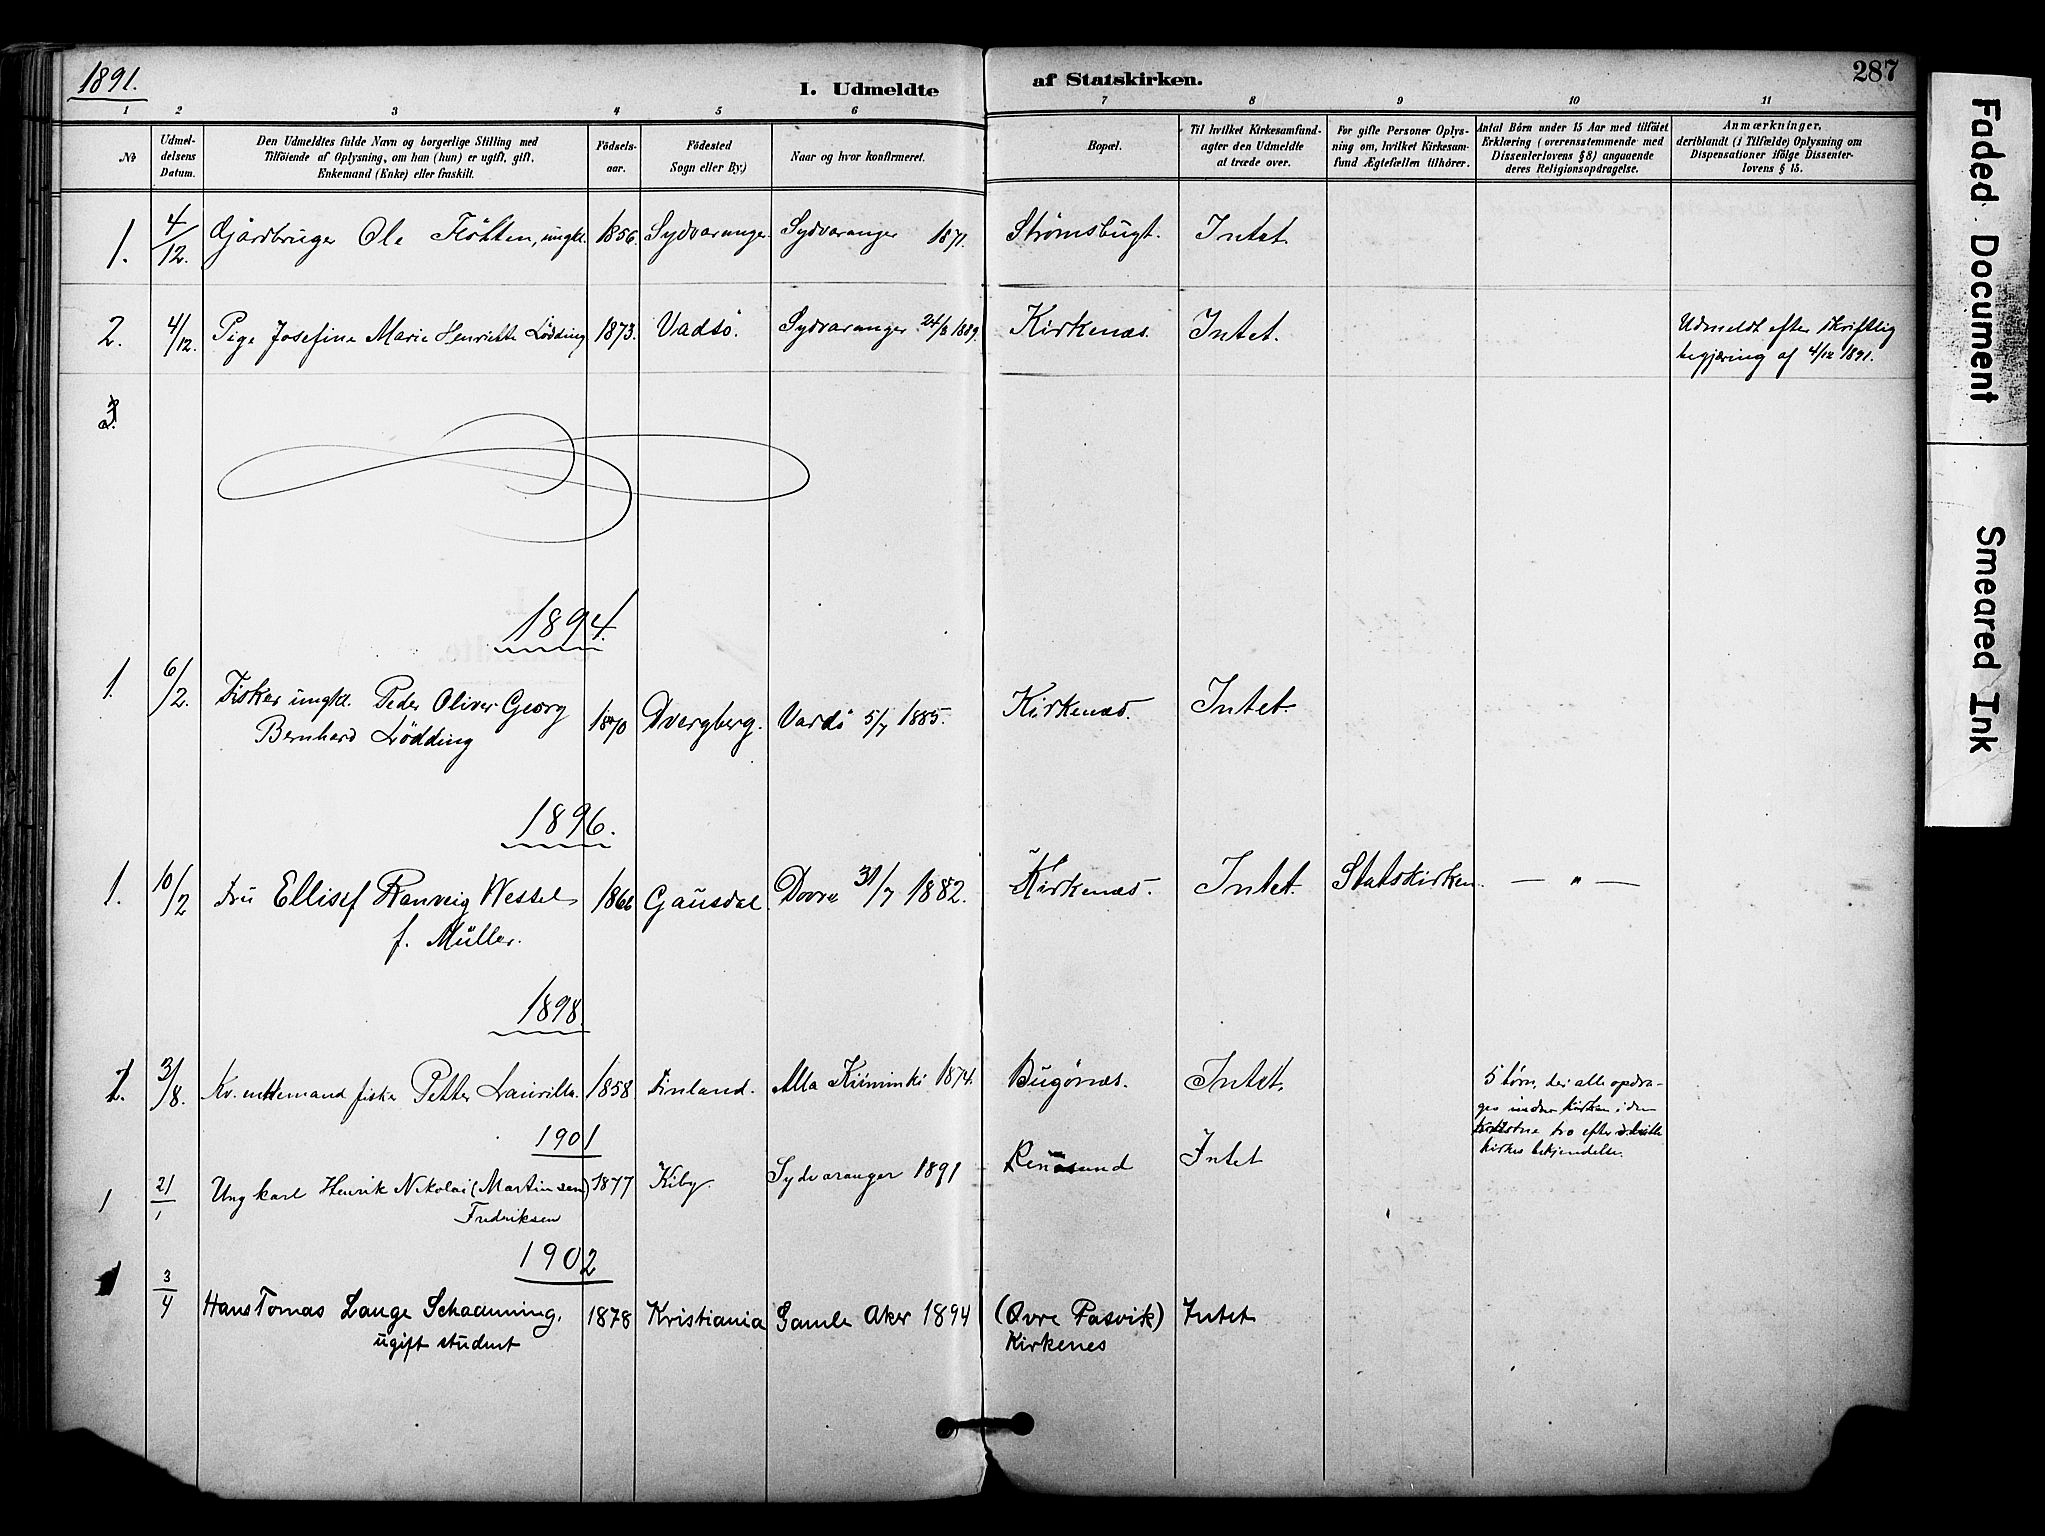 1891.
I. Udmeldte af Statskirken. 287
1 2 3 4 5 6 7 8 9 10 11
No
Udmel-
delsens
Datum.
Den Udmeldtes fulde Navn og borgerlige Stilling med
Tilføiende af Oplysning, om han (hun) er ugift, gift,
Enkemand (Enke) eller fraskilt.
Fødsels-
aar.
Fødested
Sogn eller By.)
Naar og hvor konfirmeret.
Bopæl.
Til hvilket Kirkesamfund-
agter den Udmeldte
at træde over.
For gifte Personer Oplys-
ning om, hvilket Kirkesam-
fund Ægtefællen tilhører.
Antal Børn under 15 Aar med tilføiet
Erklæring (overensstemmende med
Dissenterlovens § 8) angaaende
deres Religionsopdragelse.
Anmærkninger,
deriblandt (i Tilfælde) Oplysning om
Dispensationer ifølge Dissenter-
lovens § 15.
1. 4/12. Gjårdbruger Ole Fløtten, ungkl. 1856. Sydvaranger. Sydvaranger 1871. Strømsbugt. Intet.
2. 4/12. Pige Josefine Marie Henriette Lødding 1873. Vadsö. Sydvaranger 24/3 1889. Kirkenæs. Intet. Udmeldt efter skriftlig
begjæring af 4/12 1891.
1894.
1. 6/2. Fisker ungkl. Peder Oliver Georg
Bernhard Lödding 1870 Dvergberg. Vardö 5/7 1885. Kirkenæs. Intet.
1896.
1. 10/2 Fru Ellisef Ranveig Wessel
f. Müller. 1866 Gausdal Dovre 31/7 1882. Kirkenæs. Intet. Statskirken. — " —
1898.
1. 3/8. Kv. enkemand fisker Petter Laurilla. 1858 Finland. Alla Kiiminki 1874. Bugönæs. Intet. 5 børn, der alle opdra-
ges inden kirken i den
kristne tro efter
kirkes bekjendelse.
1901
1 21/1 Ungkarl Henrik Nikolai (Martinsen)
Fredriksen 1877 Kiby Sydvaranger 1891 Renøsund Intet
1902
1 3/4 Hans Tomas Lange Schaanning,
ugift student 1878 Kristiania Gamle Aker 1894 (Øvre Pasvik)
Kirkenes Intet
Faded Document
Smeared Ink